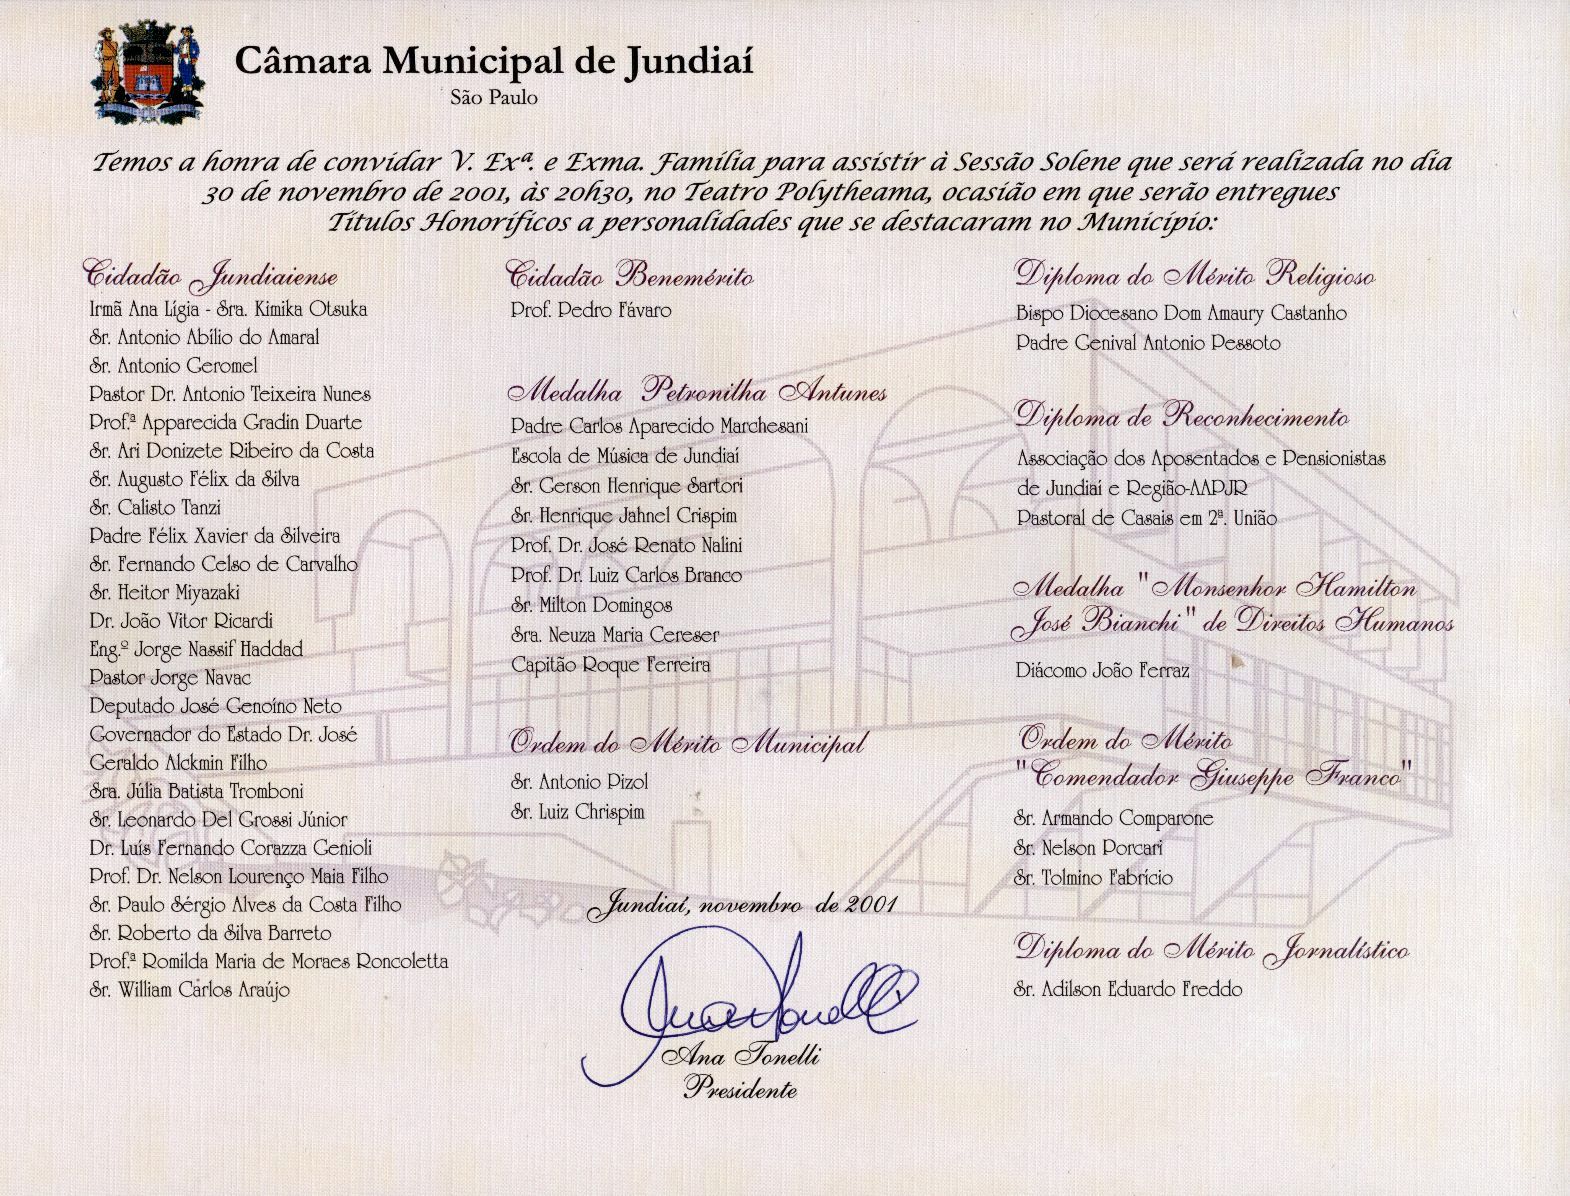 Câmara Municipal de Jundiaí
São Paulo
Temos a honra de convidar V. Exª. e Exma. Família para assistir à Sessão Solene que será realizada no dia
30 de novembro de 2001, às 20h30, no Teatro Polytheama, ocasião em que serão entregues
Títulos Honoríficos a personalidades que se destacaram no Município:
Cidadão Jundiaiense
Irmã Ana Lígia - Sra. Kimika Otsuka
Sr. Antonio Abílio do Amaral
Sr. Antonio Geromel
Pastor Dr. Antonio Teixeira Nunes
Prof.ª Apparecida Gradin Duarte
Sr. Ari Donizete Ribeiro da Costa
Sr. Augusto Félix da Silva
Sr. Calisto Tanzi
Padre Félix Xavier da Silveira
Sr. Fernando Celso de Carvalho
Sr. Heitor Miyazaki
Dr. João Vitor Ricardi
Eng.º Jorge Nassif Haddad
Pastor Jorge Navac
Deputado José Genoíno Neto
Governador do Estado Dr. José
Geraldo Alckmin Filho
Sra. Júlia Batista Tromboni
Sr. Leonardo Del Grossi Júnior
Dr. Luís Fernando Corazza Genioli
Prof. Dr. Nelson Lourenço Maia Filho
Sr. Paulo Sérgio Alves da Costa Filho
Sr. Roberto da Silva Barreto
Prof.ª Romilda Maria de Moraes Roncoletta
Sr. William Carlos Araújo
Cidadão Benemérito
Prof. Pedro Fávaro
Medalha Petronilha Antunes
Padre Carlos Aparecido Marchesani
Escola de Música de Jundiaí
Sr. Gerson Henrique Sartori
Sr. Henrique Jahnel Crispim
Prof. Dr. José Renato Nalini
Prof. Dr. Luiz Carlos Branco
Sr. Milton Domingos
Sra. Neuza Maria Cereser
Capitão Roque Ferreira
Ordem do Mérito Municipal
Sr. Antonio Pizol
Sr. Luiz Chrispim
Jundiaí, novembro de 2001
Ana Tonelli
Ana Tonelli
Presidente
Diploma do Mérito Religioso
Bispo Diocesano Dom Amaury Castanho
Padre Genival Antonio Pessoto
Diploma de Reconhecimento
Associação dos Aposentados e Pensionistas
de Jundiaí e Região-AAPJR
Pastoral de Casais em 2ª. União
Medalha "Monsenhor Hamilton
José Bianchi" de Direitos Humanos
Diácomo João Ferraz
Ordem do Mérito
"Comendador Giuseppe Franco"
Sr. Armando Comparone
Sr. Nelson Porcari
Sr. Tolmino Fabrício
Diploma do Mérito Jornalístico
Sr. Adilson Eduardo Freddo